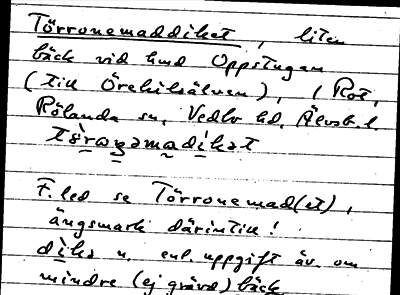 Törronemaddiket, liten
bäck vid hmd Oppstugan
(till Örekilsälven), i Rot,
Rölanda sn, Vedbo hd, Älvsb. l.
F. led se Törronemad(et),
ängsmark därintill!
dike n. enl. uppgift äv. om
mindre (ej grävd) bäck